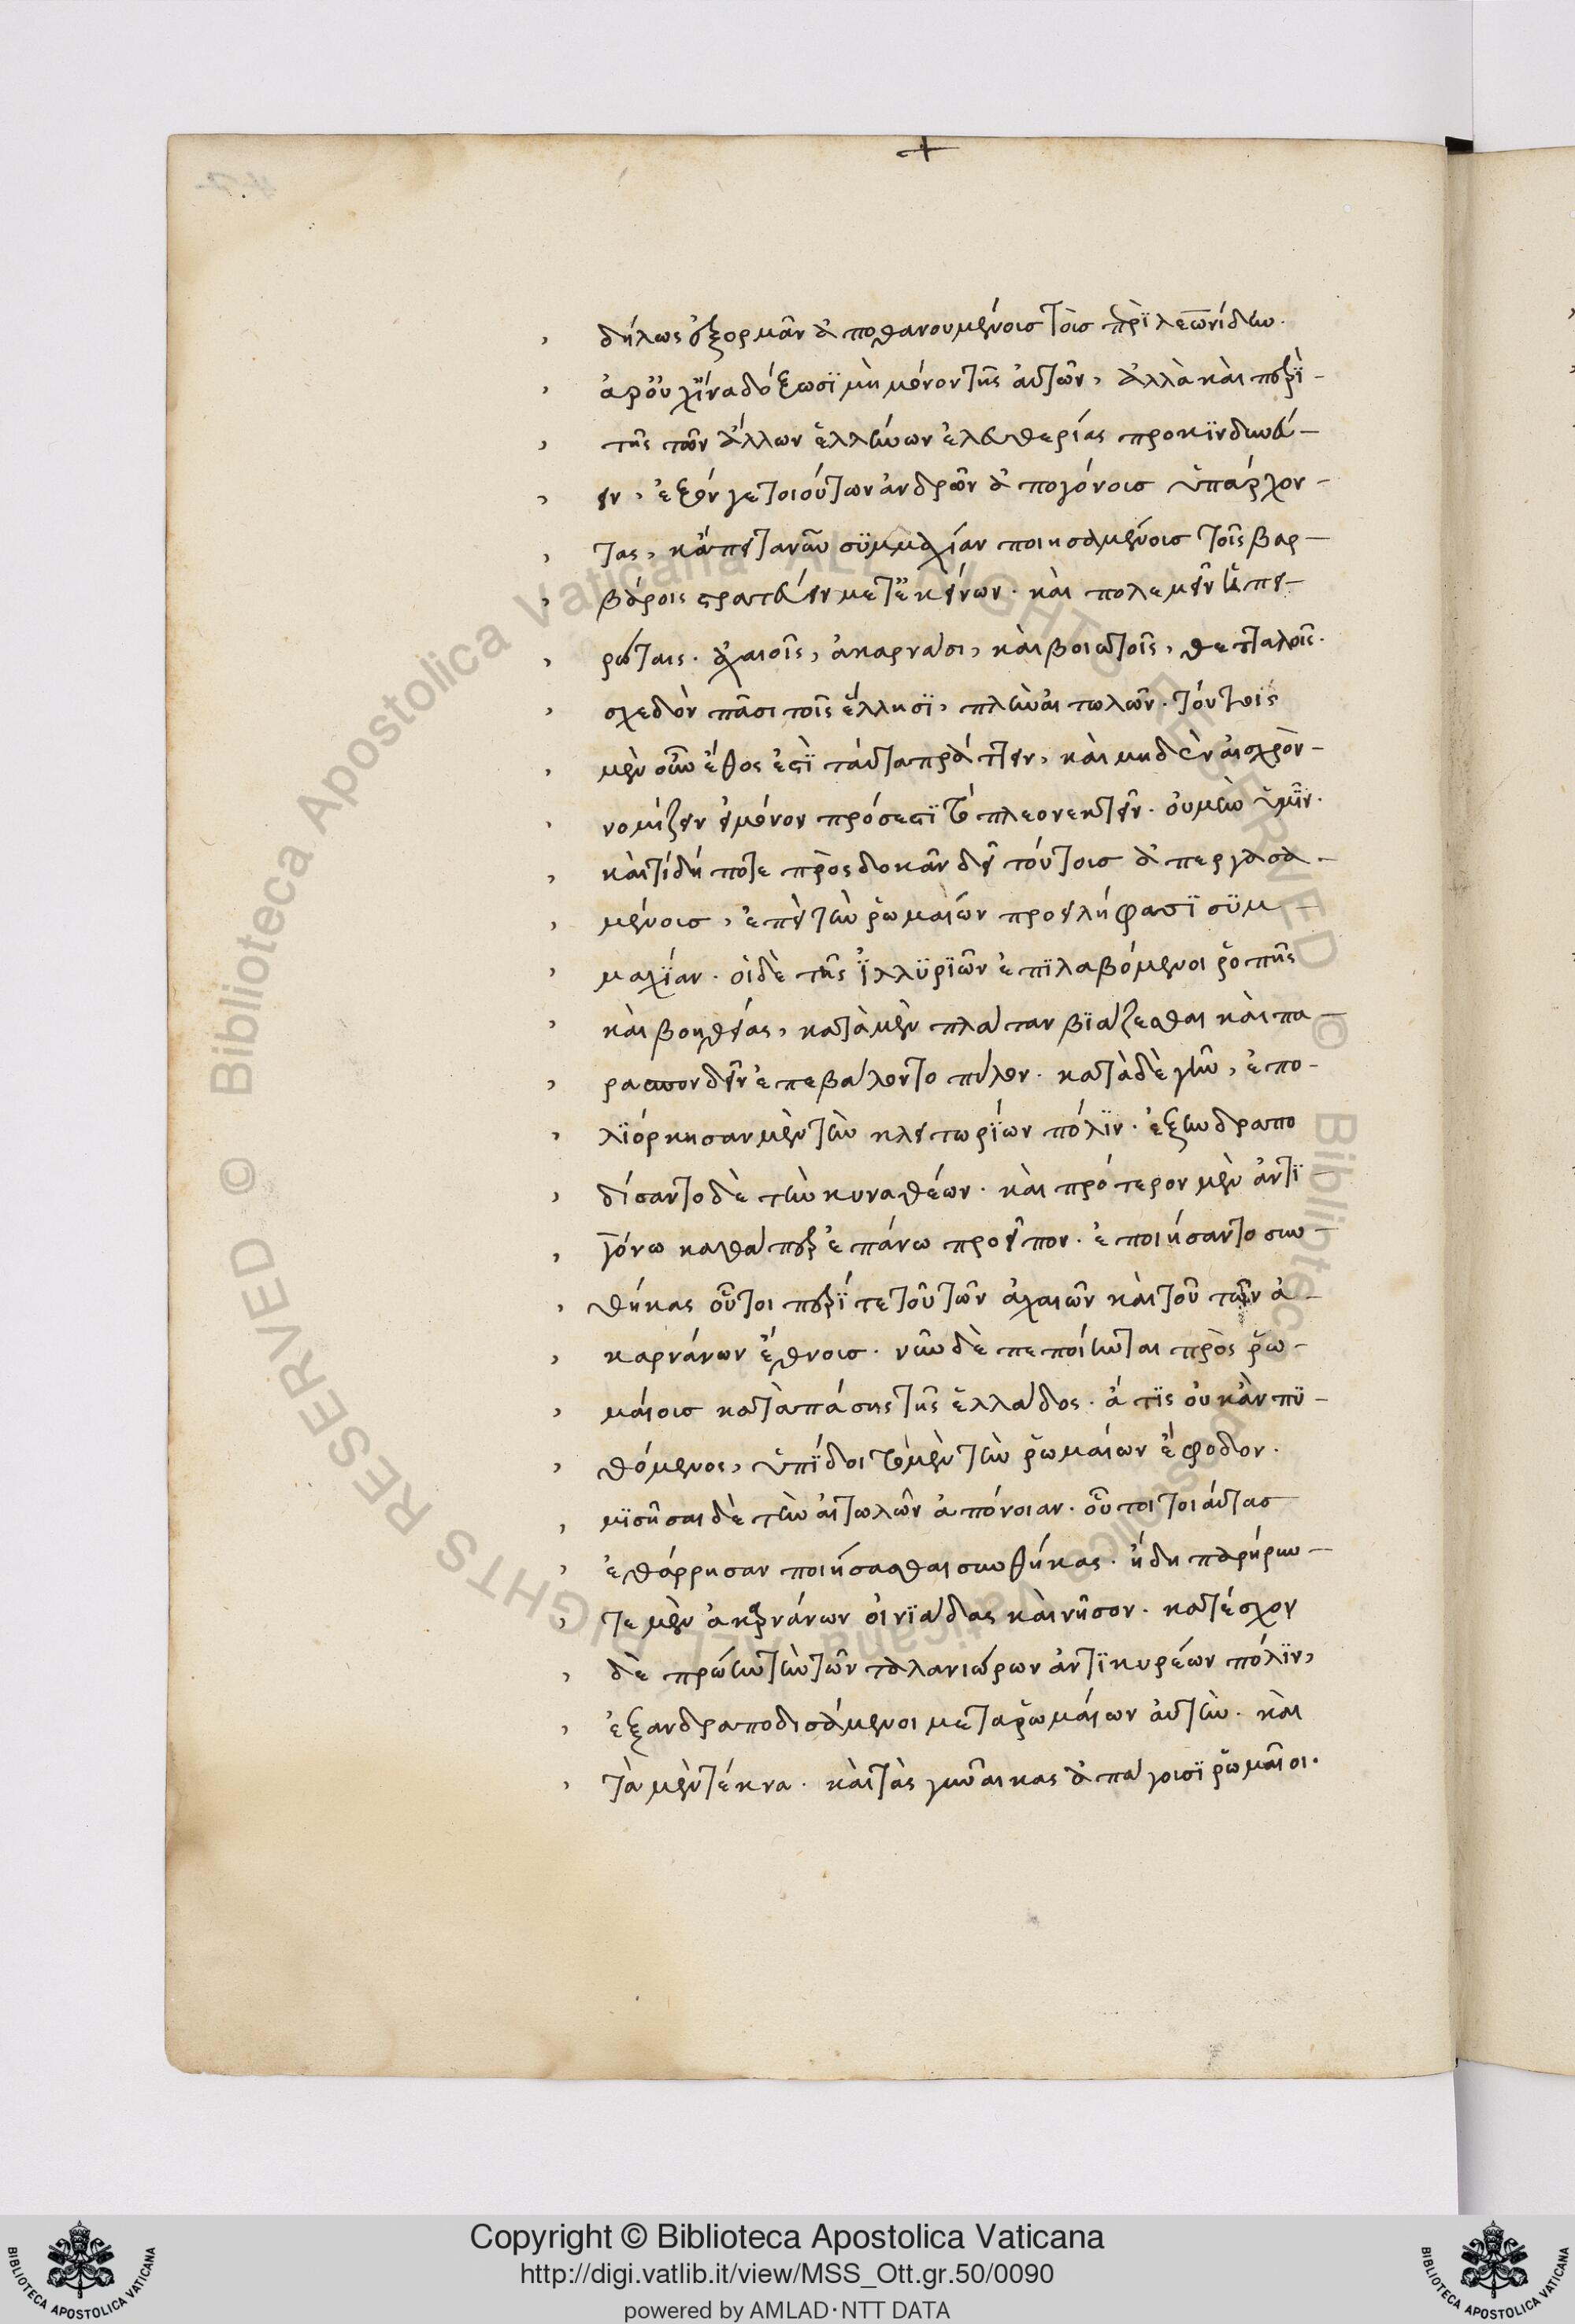 +
δήλως ἐξορμᾶν ἀποθανουμένοις τοῖς περὶ λεωνίδην.
ἆρ' οὐχ ἵνα δόξωσϊ μὴ μόνον τῆς αὐτῶν, ἀλλὰ καὶ περὶ-
τῆς τῶν ἄλλων ἑλλήνων ἐλευθερίας προκϊνδυνεύ-
ειν, ἐξόν γε τοιούτων ἀνδρῶν ἀπογόνοις ὑπάρχον-
τας, κἄπειτα νῦν σϋμμαχίαν ποιησαμένοις τοῖς βαρ-
βάροις στρατεύειν μετ' ἐκείνων. καὶ πολεμεῖν ἠπει-
ρώταις. ἀχαιοῖς, ἀκαρνᾶσι, καὶ βοιωτοῖς, θετταλοῖς.
σχεδὸν πᾶσι τοῖς ἕλλησϊ, πλὴν αἰτωλῶν. τούτοις
μὲν οὖν ἔθος ἐστὶ ταῦτα πράττειν, καὶ μηδὲν αἰσχρὸν-
νομίζειν εἰ μόνον πρόσεστϊ τὸ πλεονεκτεῖν. οὐ μὴν ὑμῖν.
καὶ τί δή ποτε προσδοκᾶν δεῖ τούτοις ἀπεργασα-
μένοις, ἐπεὶ τὴν ῥωμαίων προσειλήφασϊ σϋμ-
μαχίαν. οἱ δὲ τῆς ἰλλϋριῶν ἐπϊλαβόμενοι ῥοπῆς
καὶ βοηθείας, κατὰ μὲν πλάταν βϊάζεσθαι καὶ πα-
ρασπονδεῖν ἐπεβάλοντο πύλον. κατὰ δὲ γῆν, ἐπο-
λϊόρκησαν μὲν τὴν κλειτορϊων πόλϊν. ἐξηνδραπο
δίσαντο δὲ τὴν κυναθέων. καὶ πρότερον μὲν ἀντϊ
γόνω καθάπερ ἐπάνω προεῖπον. ἐποιήσαντο συν-
θήκας οὗτοι περί τε τοῦ τῶν ἀχαιῶν καὶ τοῦ τῶν ἀ-
καρνάνων ἔθνοις. νῦν δὲ πεποίηνται πρὸς ῥω-
μαίοις κατὰ πάσης τῆς ἑλλάδος. ἅ τϊς οὐκ ἂν πϋ-
θόμενος, ὑπίδοιτο μὲν τὴν ῥωμαίων ἔφοδον.
μϊσῆσαι δὲ τὴν αἰτωλῶν ἀπόνοιαν. ὅτι τοιαύτας
ἐθάρρησαν ποιήσασθαι συνθήκας. ἤδη παρῄρην-
ται μὲν ἀκαρνάνων οἰνϊάδας καὶ νῆσον. κατέσχον
δὲ πρώην τὴν τῶν ταλαπιώρων ἀντϊκυρέων πόλϊν,
ἐξανδραποδισάμενοι μετὰ ῥωμαίων αὐτήν. καὶ
τὰ μὲν τέκνα. καὶ τὰς γυναῖκας ἀπάγουσϊ ῥωμαῖοι.
Copyright © Biblioteca Apostolica Vaticana
http://digi.vatlib.it/view/MSS_Ott.gr.50/0090
powered by AMLAD·NTT DATA